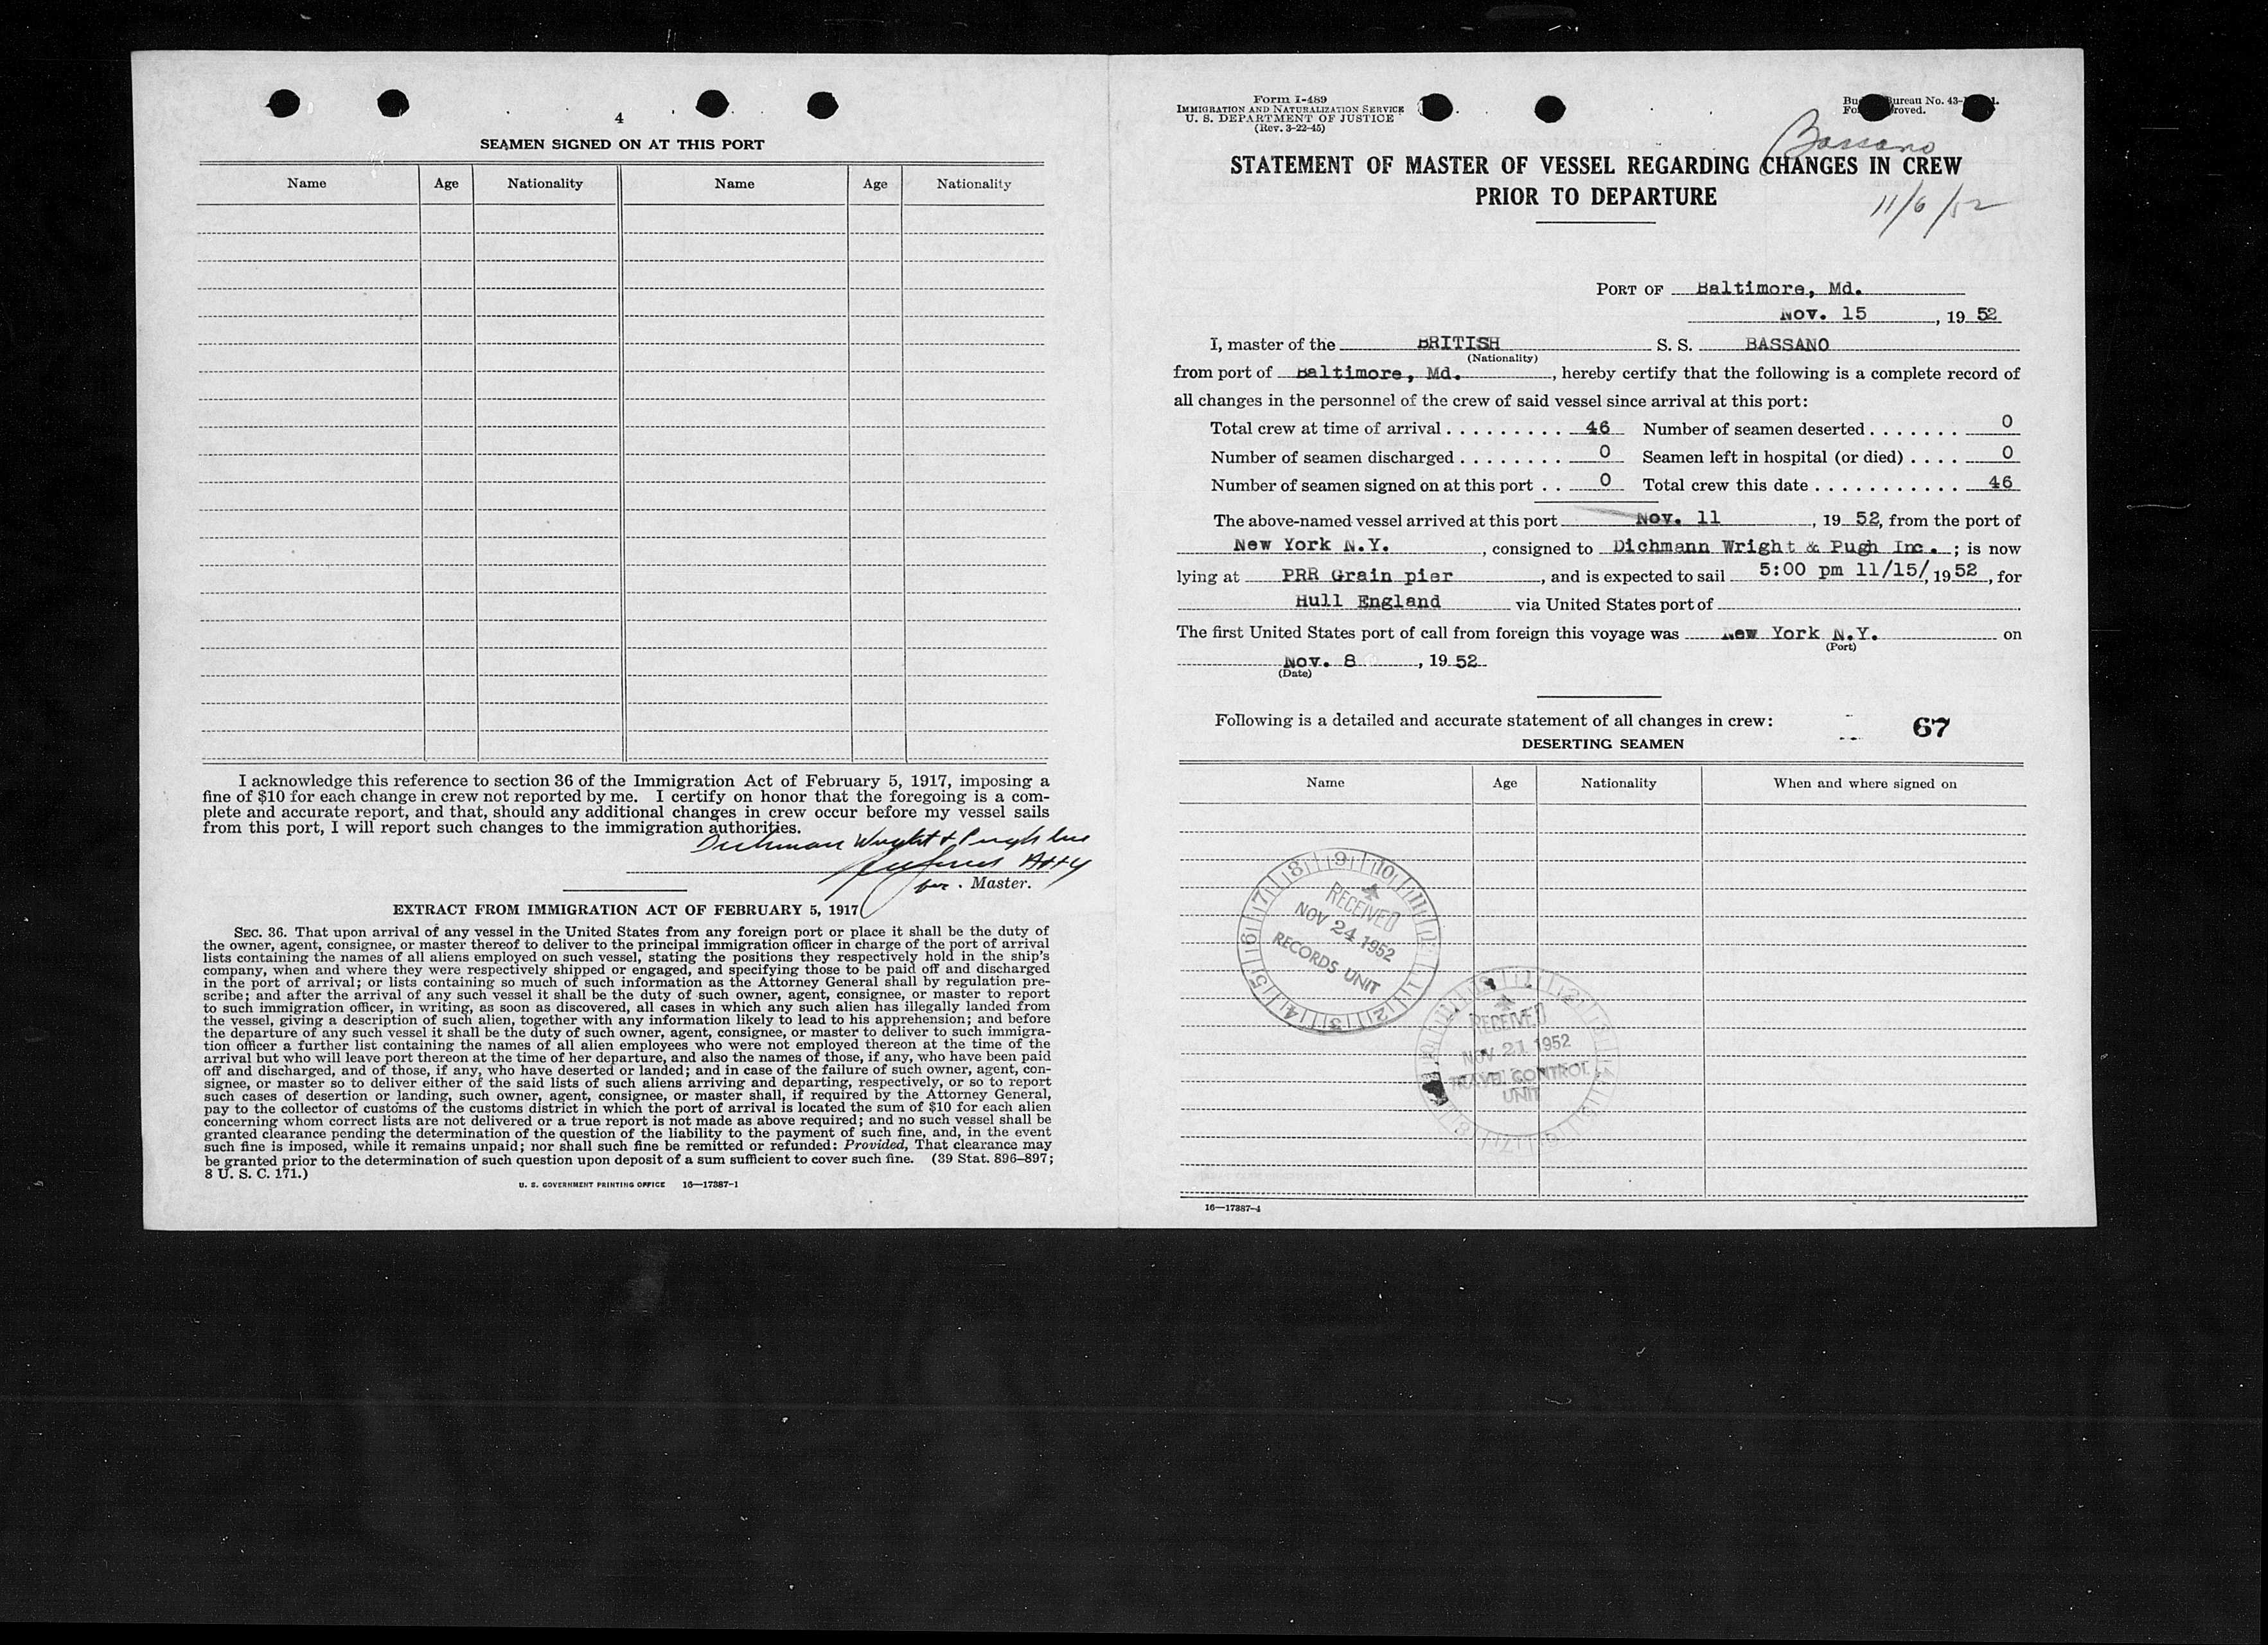 4
SEAMEN SIGNED ON AT THIS PORT
Name Age Nationality Name Age Nationality
I acknowledge this reference to section 36 of the Immigration Act of February 5, 1917, imposing a
fine of $10 for each change in crew not reported by me. I certify on honor that the foregoing is a com-
plete and accurate report, and that, should any additional changes in crew occur before my vessel sails
from this port, I will report such changes to the immigration authorities.
Dichmann Wright & Pugh Inc
Atty
for. Master.
EXTRACT FROM IMMIGRATION ACT OF FEBRUARY 5, 1917
SEC. 36. That upon arrival of any vessel in the United States from any foreign port or place it shall be the duty of
the owner, agent, consignee, or master thereof to deliver to the principal immigration officer in charge of the port of arrival
lists containing the names of all aliens employed on such vessel, stating the positions they respectively hold in the ship's
company, when and where they were respectively shipped or engaged, and specifying those to be paid off and discharged
in the port of arrival; or lists containing so much of such information as the Attorney General shall by regulation pre-
scribe; and after the arrival of any such vessel it shall be the duty of such owner, agent, consignee, or master to report
to such immigration officer, in writing, as soon as discovered, all cases in which any such alien has illegally landed from
the vessel, giving a description of such alien, together with any information likely to lead to his apprehension; and before
the departure of any such vessel it shall be the duty of such owner, agent, consignee, or master to deliver to such immigra-
tion officer a further list containing the names of all alien employees who were not employed thereon at the time of the
arrival but who will leave port thereon at the time of her departure, and also the names of those, if any, who have been paid
off and discharged, and of those, if any, who have deserted or landed; and in case of the failure of such owner, agent, con-
signee, or master so to deliver either of the said lists of such aliens arriving and departing, respectively, or so to report
such cases of desertion or landing, such owner, agent, consignee, or master shall, if required by the Attorney General,
pay to the collector of customs of the customs district in which the port of arrival is located the sum of $10 for each alien
concerning whom correct lists are not delivered or a true report is not made as above required; and no such vessel shall be
granted clearance pending the determination of the question of the liability to the payment of such fine, and, in the event
such fine is imposed, while it remains unpaid; nor shall such fine be remitted or refunded: Provided, That clearance may
be granted prior to the determination of such question upon deposit of a sum sufficient to cover such fine. (39 Stat. 896–897;
8 U. S. C. 171.)
U. S. GOVERNMENT PRINTING OFFICE 16—17387-1
Form I-489
IMMIGRATION AND NATURALIZATION SERVICE
U. S. DEPARTMENT OF JUSTICE
(Rev. 3-22-45)
Bureau No. 43-
Bassano
STATEMENT OF MASTER OF VESSEL REGARDING CHANGES IN CREW
PRIOR TO DEPARTURE
11/6/52
PORT OF Baltimore, Md.
Nov. 15, 19 52
I, master of the BRITISH S. S. BASSANO
(Nationality)
from port of Baltimore, Md., hereby certify that the following is a complete record of
all changes in the personnel of the crew of said vessel since arrival at this port:
Total crew at time of arrival . . . . . . . . . . 46 Number of seamen deserted . . . . . . . 0
Number of seamen discharged . . . . . . . . 0 Seamen left in hospital (or died) . . . . 0
Number of seamen signed on at this port . . 0 Total crew this date . . . . . . . . . . . 46
The above-named vessel arrived at this port Nov. 11, 19 52, from the port of
New York N.Y., consigned to Dichmann Wright & Pugh Inc. ; is now
lying at PRR Grain pier, and is expected to sail 5:00 pm 11/15/, 19 52, for
Hull England via United States port of
The first United States port of call from foreign this voyage was New York N.Y. on
(Port)
Nov. 8, 19 52
(Date)
Following is a detailed and accurate statement of all changes in crew:
67
DESERTING SEAMEN
Name Age Nationality When and where signed on
RECEIVED
NOV 24 1952
RECORDS UNIT
RECEIVED
NOV 21 1952
TRAVEL CONTROL
UNIT
16—17387-4